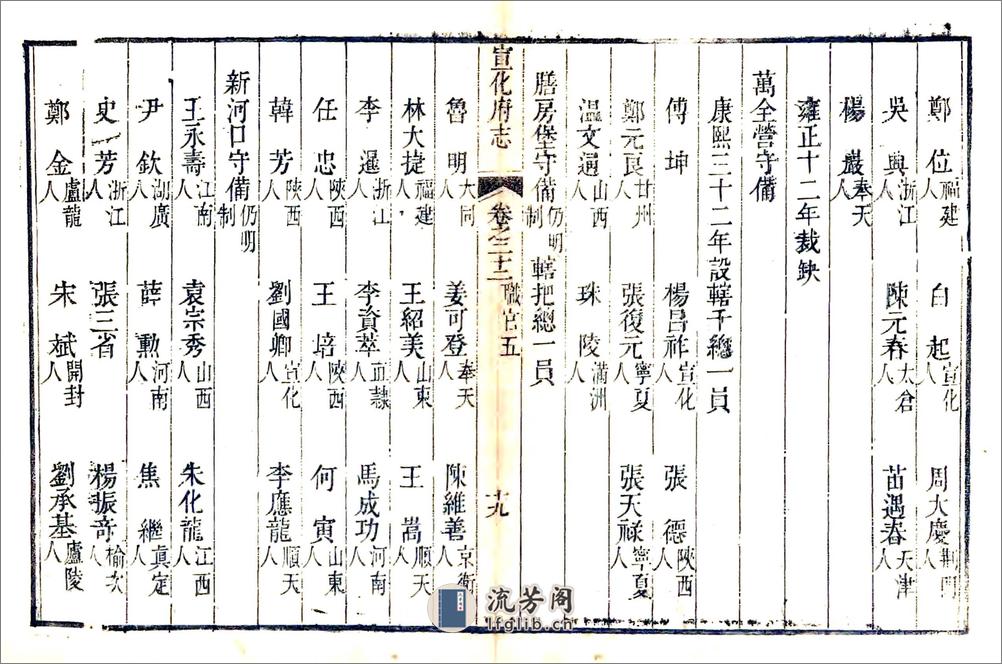 鄭位福建人　白起宣化人　周大慶荆門人
吳典浙江人　陳元春太倉人　苗遇春天津人
楊巖奉天人
雍正十二年裁缺
萬全營守備
康熙三十二年設轄千總一員
傅坤　楊昌祚宣化人　張德陝西人
鄭元良甘州人　張復元寧夏人　張天禄寧夏人
温文通山西人　珠陵滿洲人
膳房堡守備仍明制　轄把總一員
宣化府志　卷之二十二　職官五　十九
魯明大同人　姜可登奉天人　陳維善京衛人
林大捷福建人　王紹美山東人　王嵩順天人
李暹浙江人　李資萃直隸人　馬成功河南人
任忠陝西人　王培陝西人　何寅山東人
韓芳陝西人　劉國卿宣化人　李應龍順天人
新河口守備仍明制
王永壽江南人　袁宗秀山西人　朱化龍江西人
尹欽湖廣人　薛勳河南人　焦繼真定人
史芳浙江人　張三省　楊振奇榆次人
鄭金盧龍人　宋斌開封人　劉承基廬陵人
流芳阁
lfglib.cn